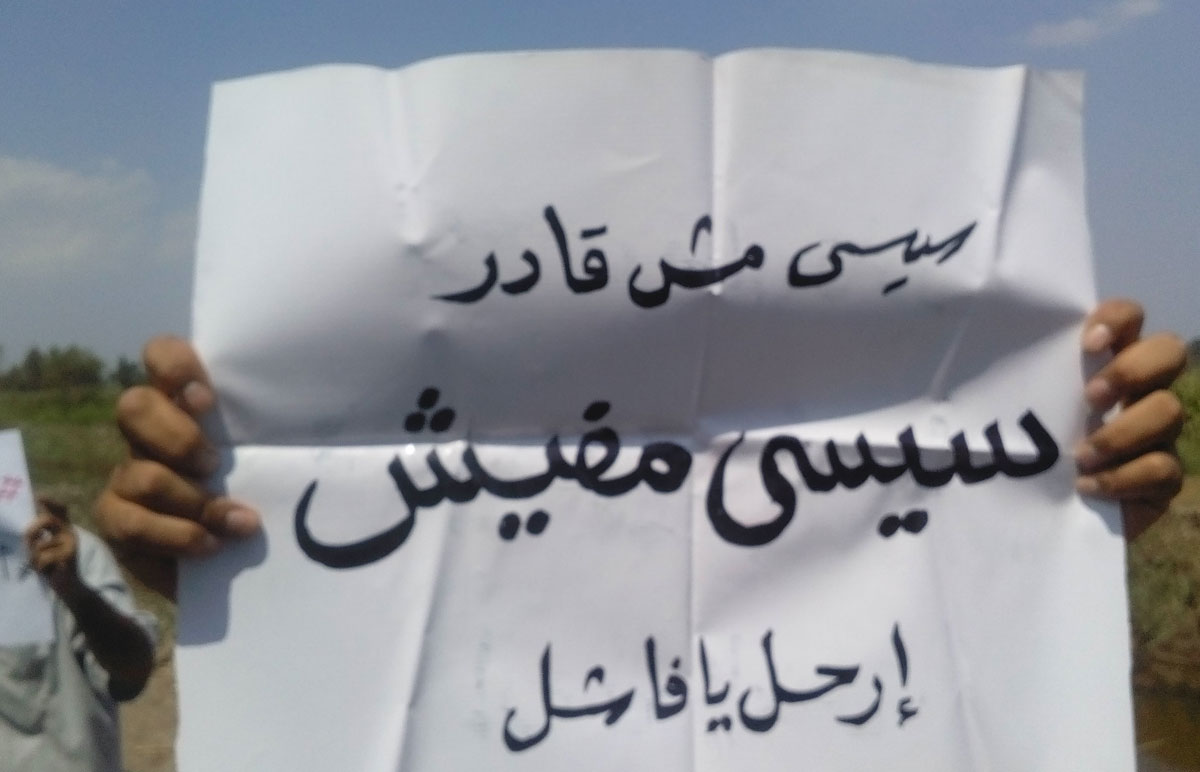 سيسى مش قادر
سيسى مفيش
إرحل يا فاشل